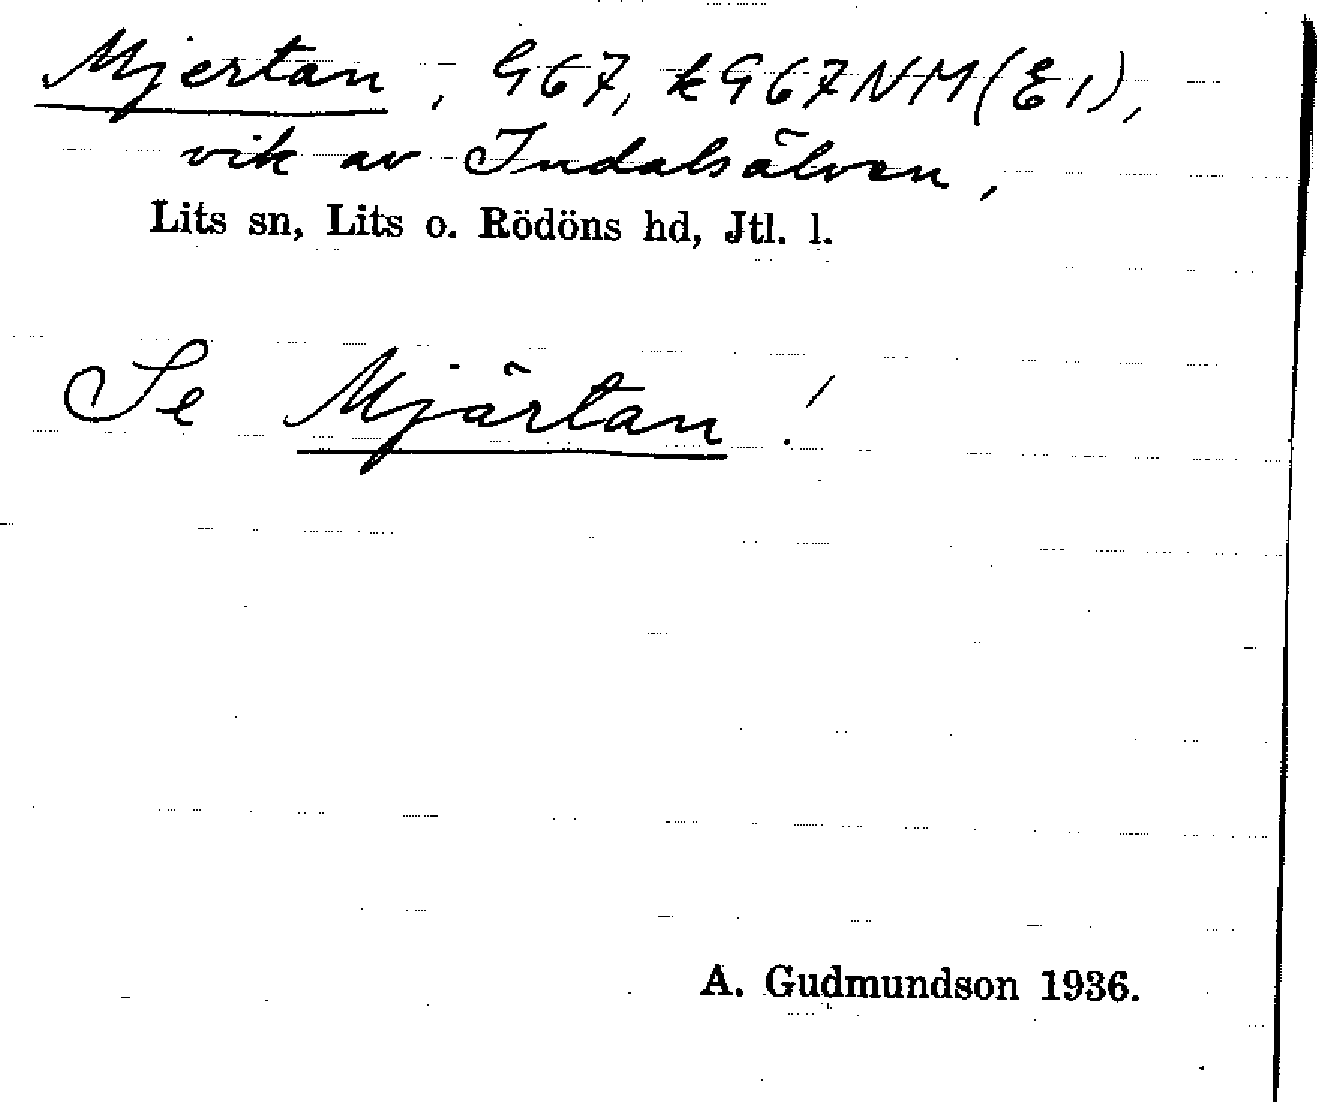 Mjertan, G67, kG67NM(E1),
vik av Indalsälven,
Lits sn, Lits o. Rödöns hd, Jtl. l.
Se Mjärtan!
A. Gudmundson 1936.